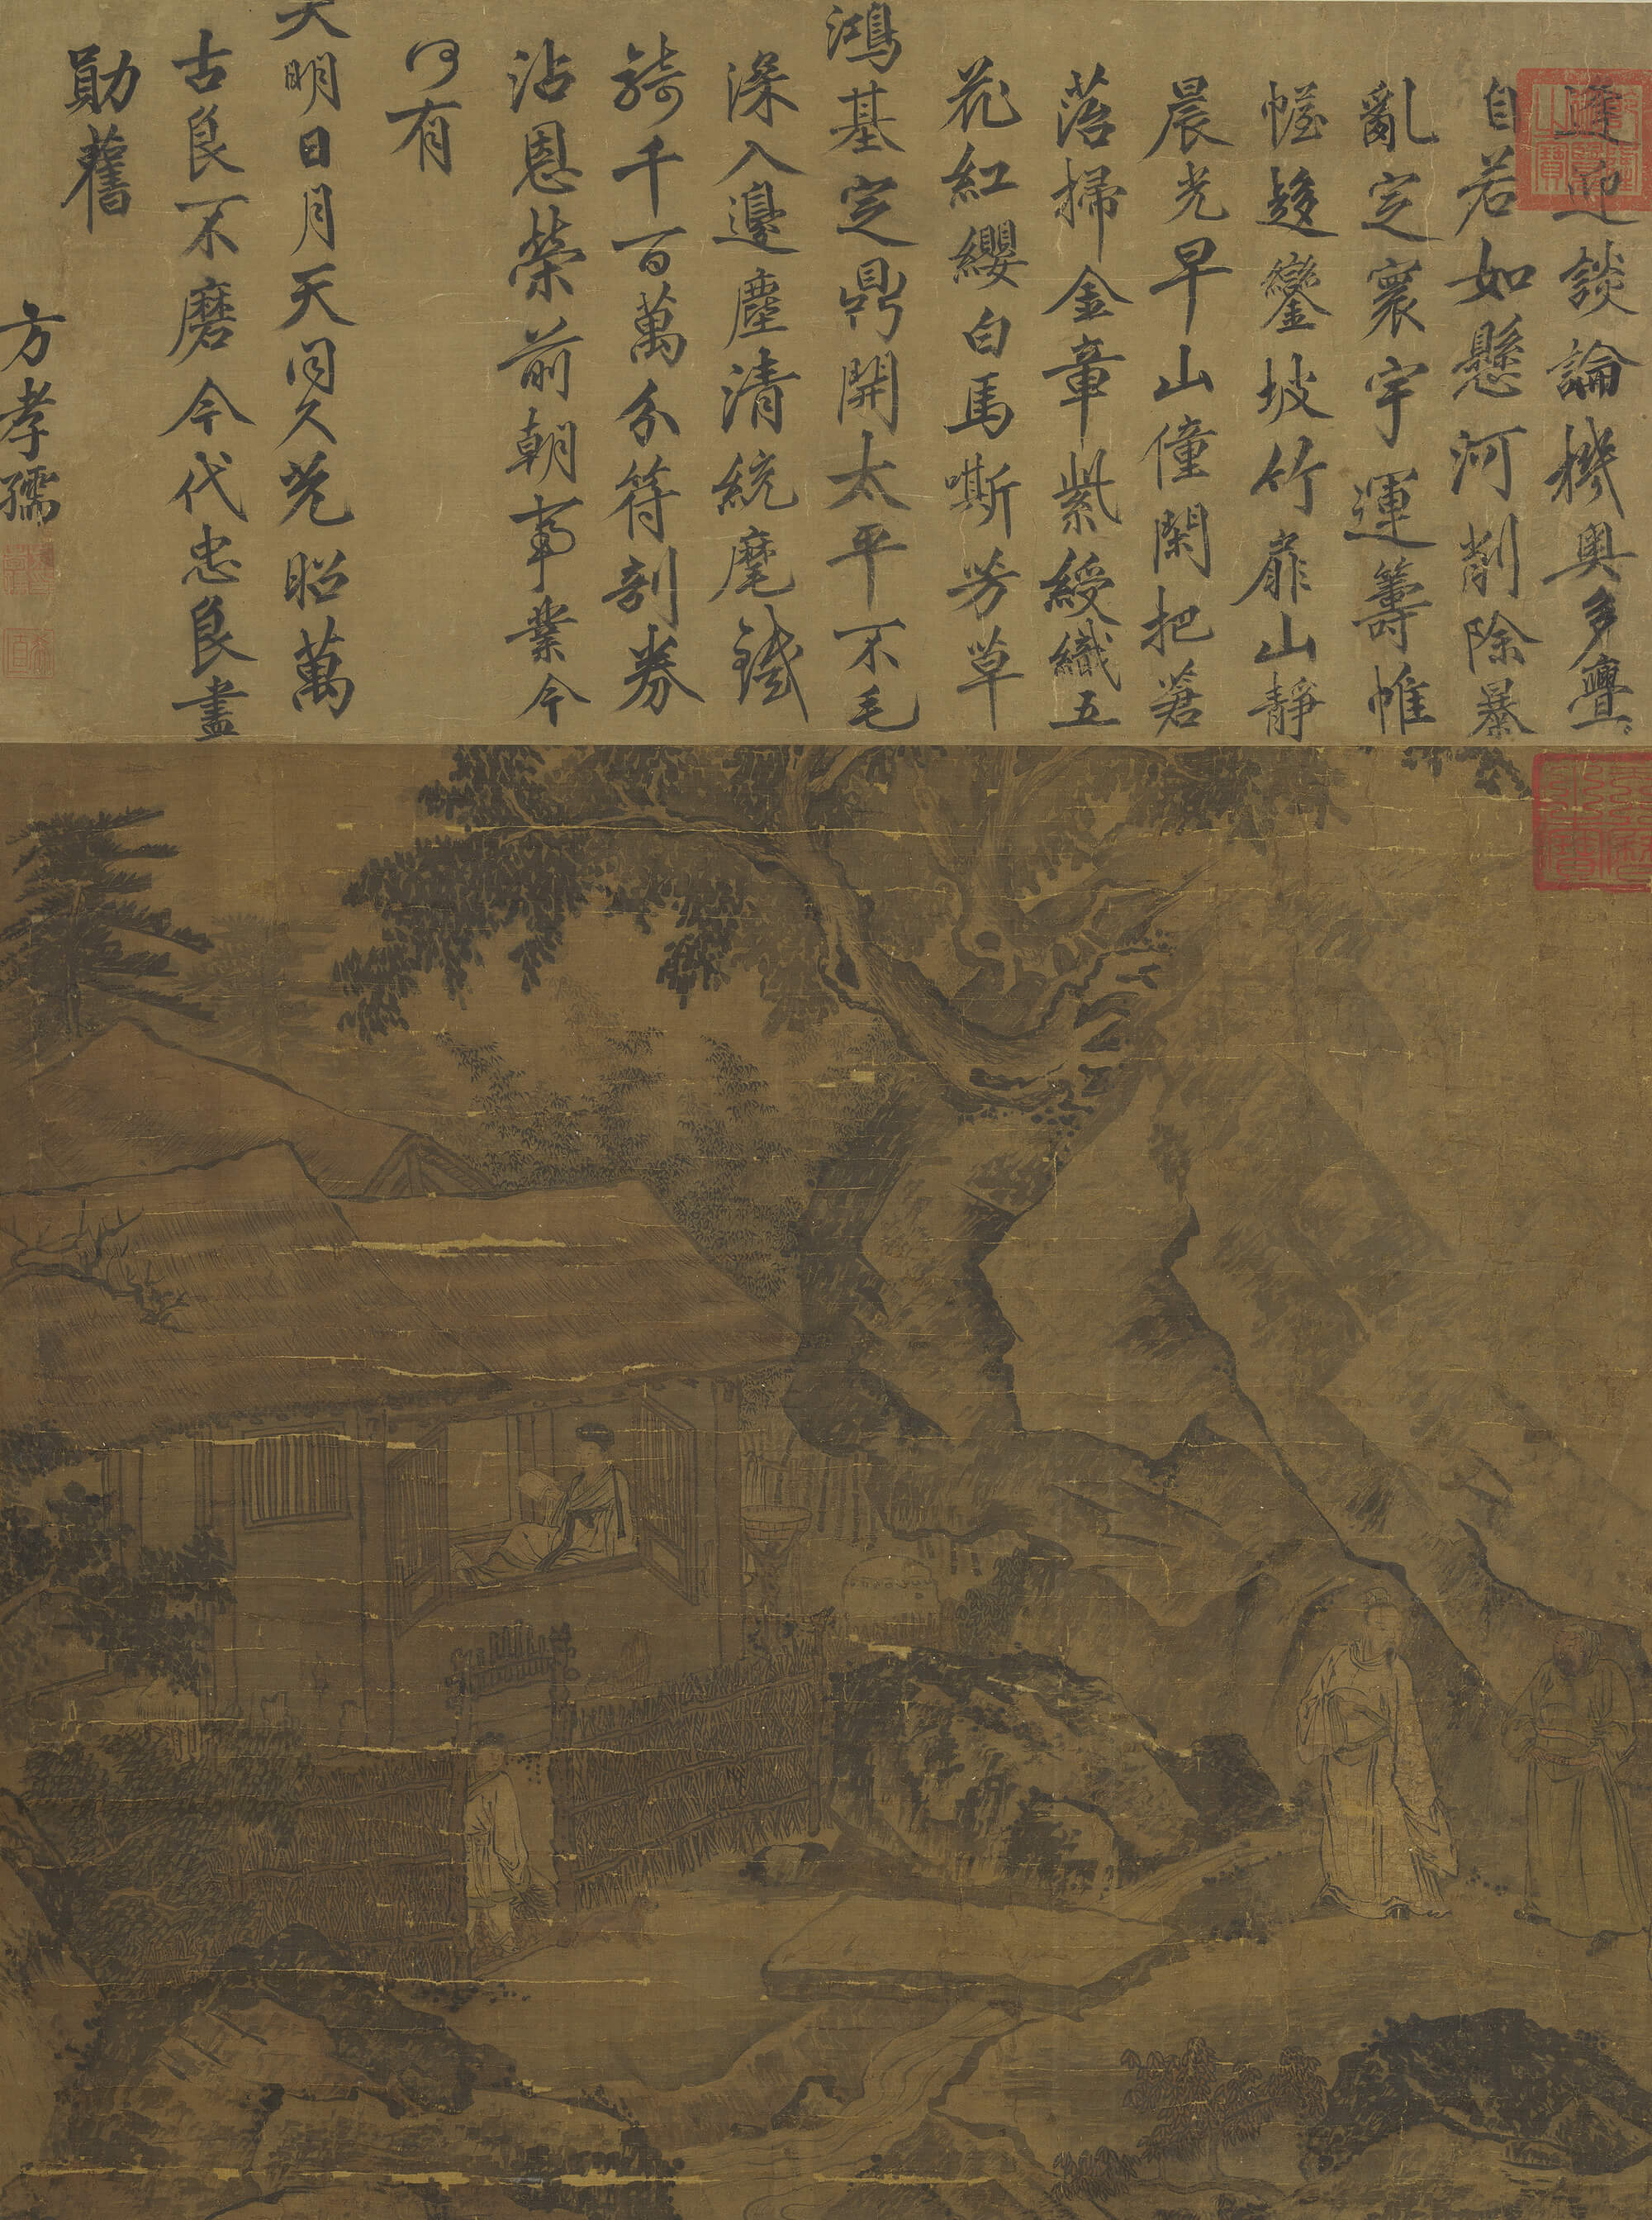 逢迎談論機奧多亹亹
自若如懸河削除暴
亂定寰宇運籌帷
幄趍鑾坡竹扉山靜
晨光早山僮閑把蒼
苔掃金章紫綬織五
花紅纓白馬嘶芳草
鴻基定鼎開太平不毛
深入邊塵清統麾鐵
騎千百萬分符剖券
沾恩榮前朝事業今
何有
大明日月天同久光昭萬
古良不磨今代忠良盡
勛舊
方孝孺